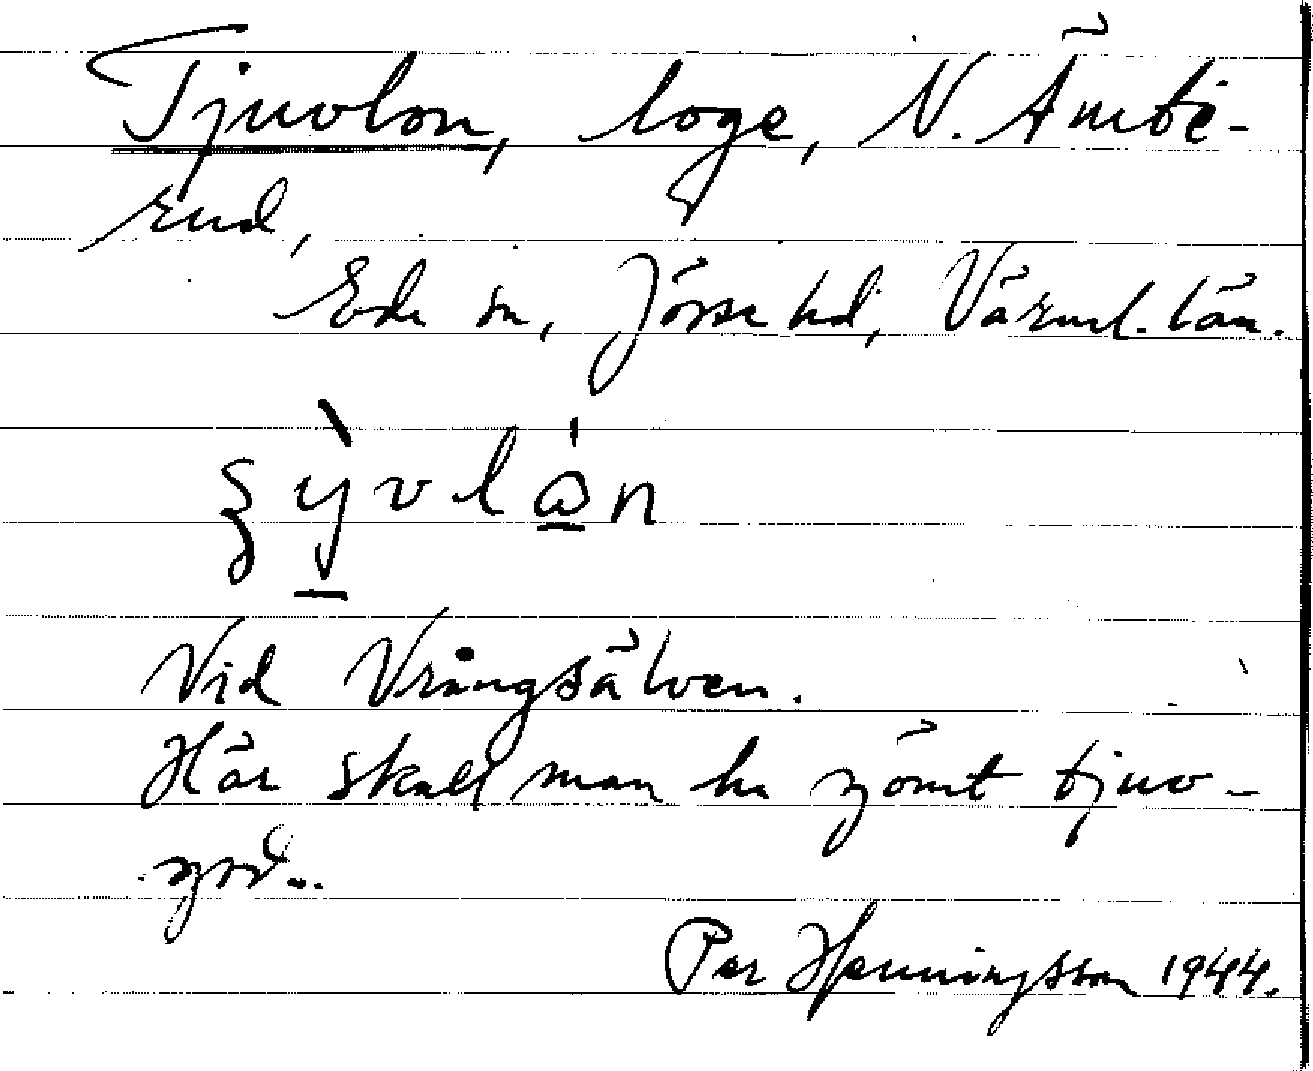 Tjuvlon, loge, N. Ämte-
rud,
Eda sn, Jösse hd, Värml. län.
Vid Vrångsälven.
Här skall man ha gömt tjuv-
gods.
Per Henningsson 1944.